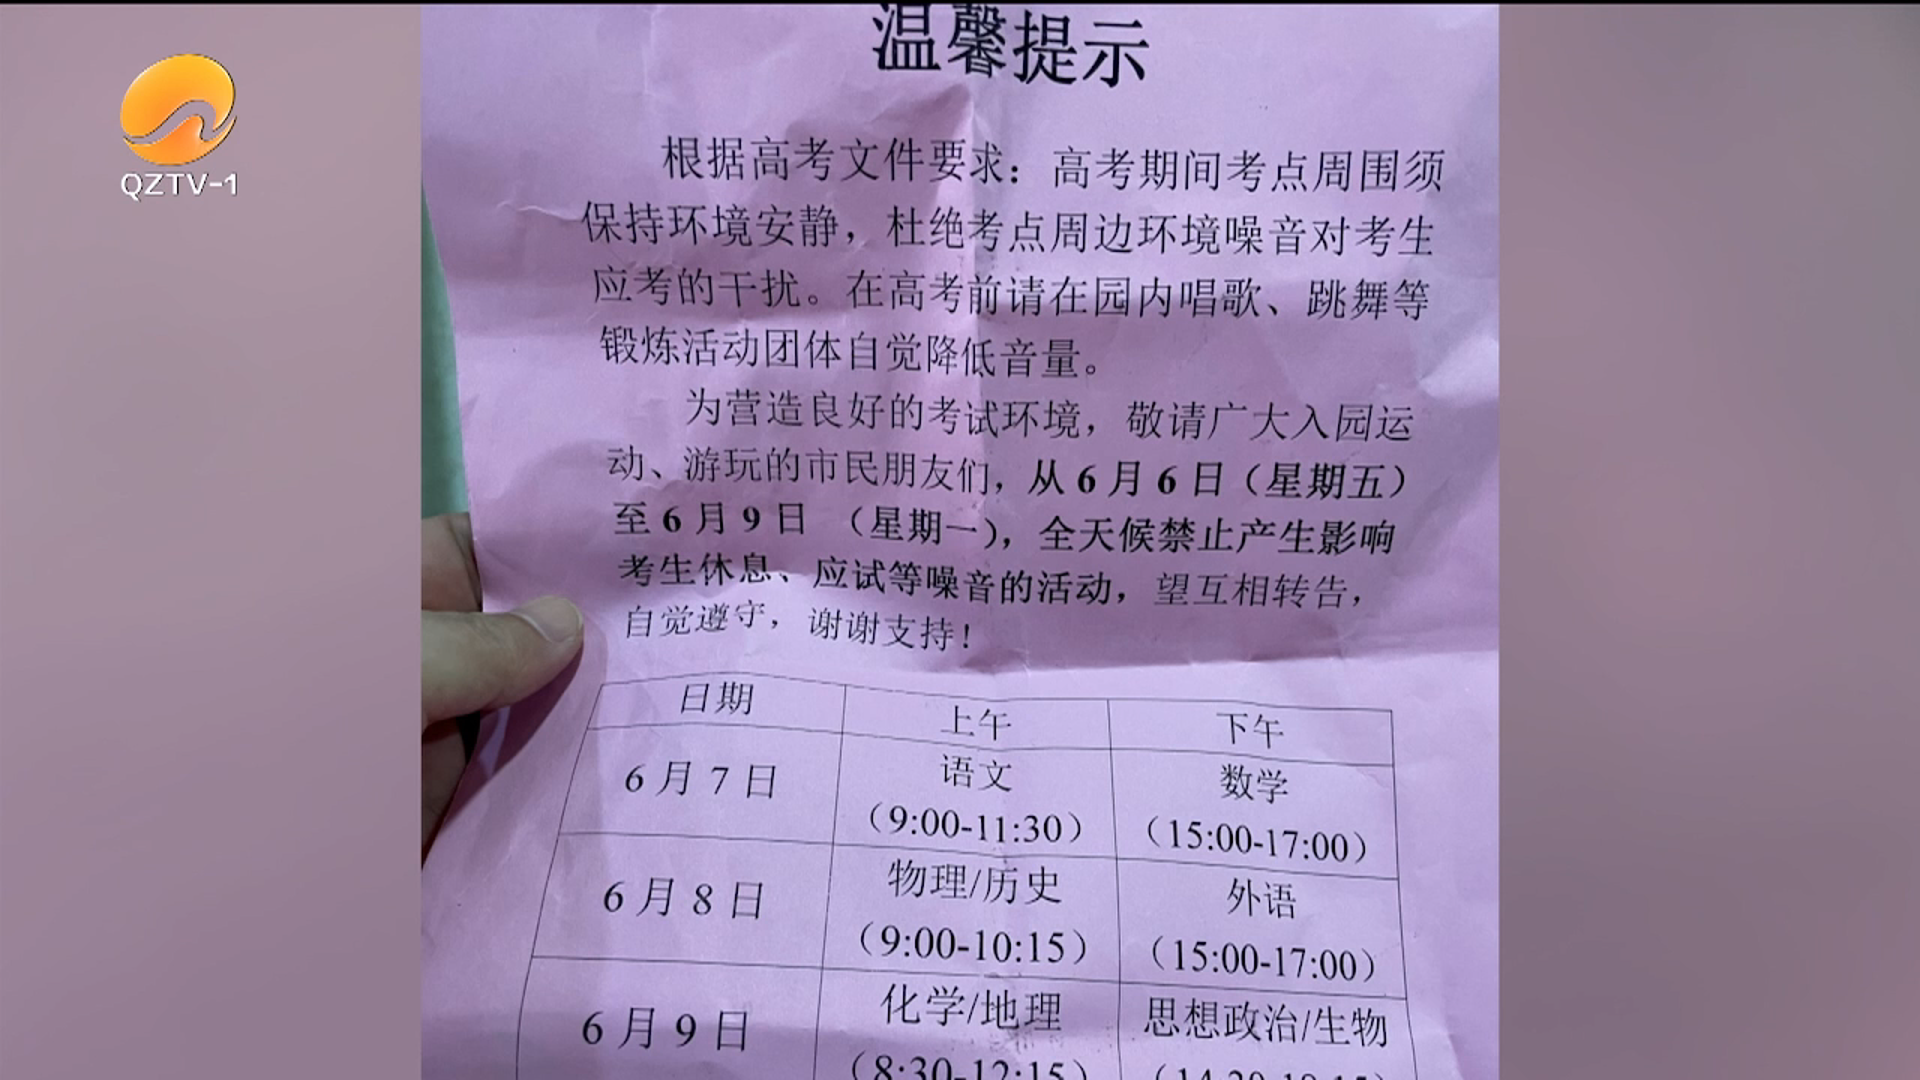 温馨提示
QZTV-1
根据高考文件要求：高考期间考点周围须
保持环境安静，杜绝考点周边环境噪音对考生
应考的干扰。在高考前请在园内唱歌、跳舞等
锻炼活动团体自觉降低音量。
为营造良好的考试环境，敬请广大入园运
动、游玩的市民朋友们，从6月6日（星期五）
至6月9日（星期一），全天候禁止产生影响
考生休息、应试等噪音的活动，望互相转告，
自觉遵守，谢谢支持！
日期 上午 下午
6月7日 语文 数学
（9:00-11:30） （15:00-17:00）
6月8日 物理/历史 外语
（9:00-10:15） （15:00-17:00）
6月9日 化学/地理 思想政治/生物
（8:30-12:15）